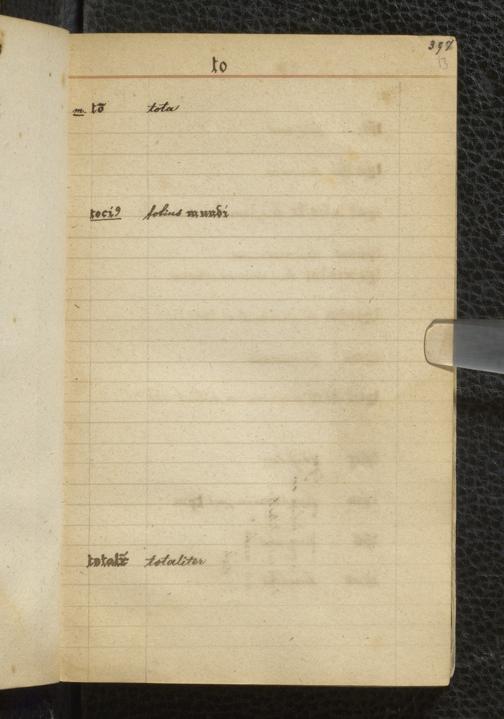 397
13
to
m. tō tota
toci9 totius mundi
totalr̄ totaliter